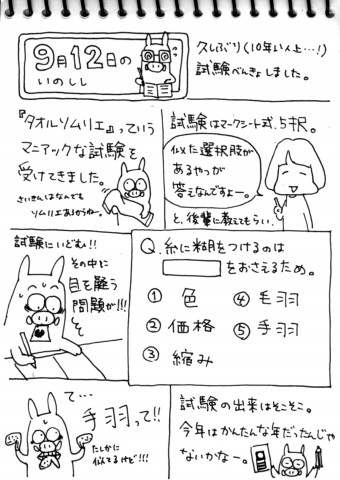 9月12日の
いのしし
久しぶり(10年以上…!)
試験べんきょしました。
『タオルソムリエ』っていう
マニアックな試験を
受けてきました。
さいきんはなんでも
ソムリエあるからねー。
試験はマークシート式、5択。
似た選択肢が
あるやつが
答えなんですよー。
と、後輩に教えてもらい、
試験にいどむ!!
その中に
目を疑う
問題が!!!
Q.糸に糊をつけるのは
をおさえるため。
① 色
② 価格
③ 縮み
④ 毛羽
⑤ 手羽
て…
手羽って!!
たしかに
似てるけど!!!
試験の出来はそこそこ。
今年はかんたんな年だったんじゃ
ないかなー。